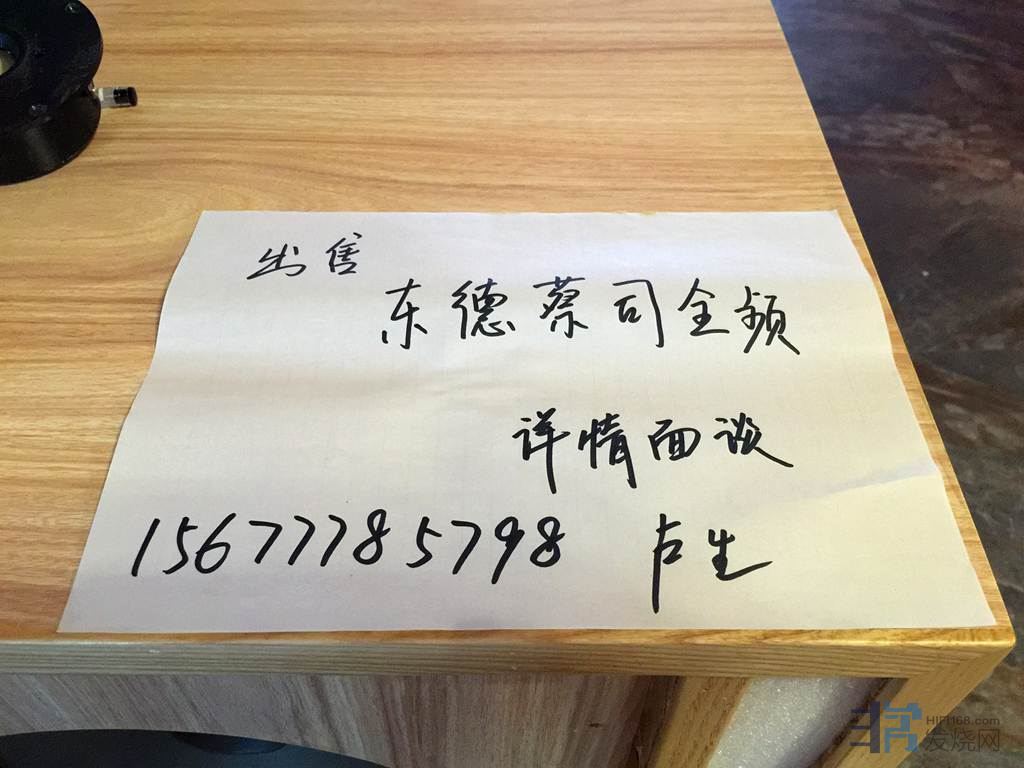 出售
东德蔡司全频
详情面谈
15677785798 卢生
HIFI168.com
发烧网